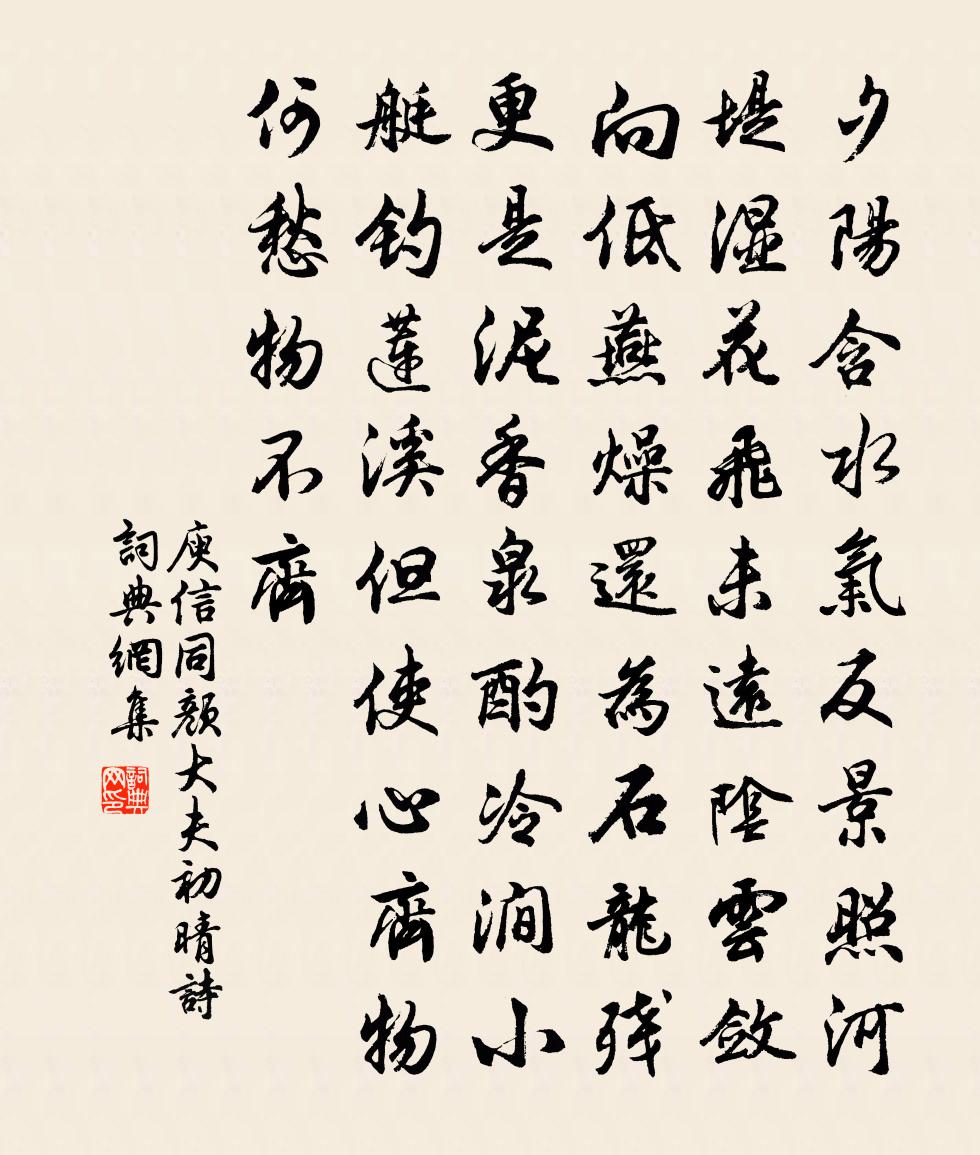 夕陽含水氣反景照河
堤濕花飛未遠陰雲斂
向低燕燥還為石龍殘
更是泥香泉酌冷澗小
艇釣蓮溪但使心齊物
何愁物不齊
庾信同顏大夫初晴詩
詞典網集
詞典網印